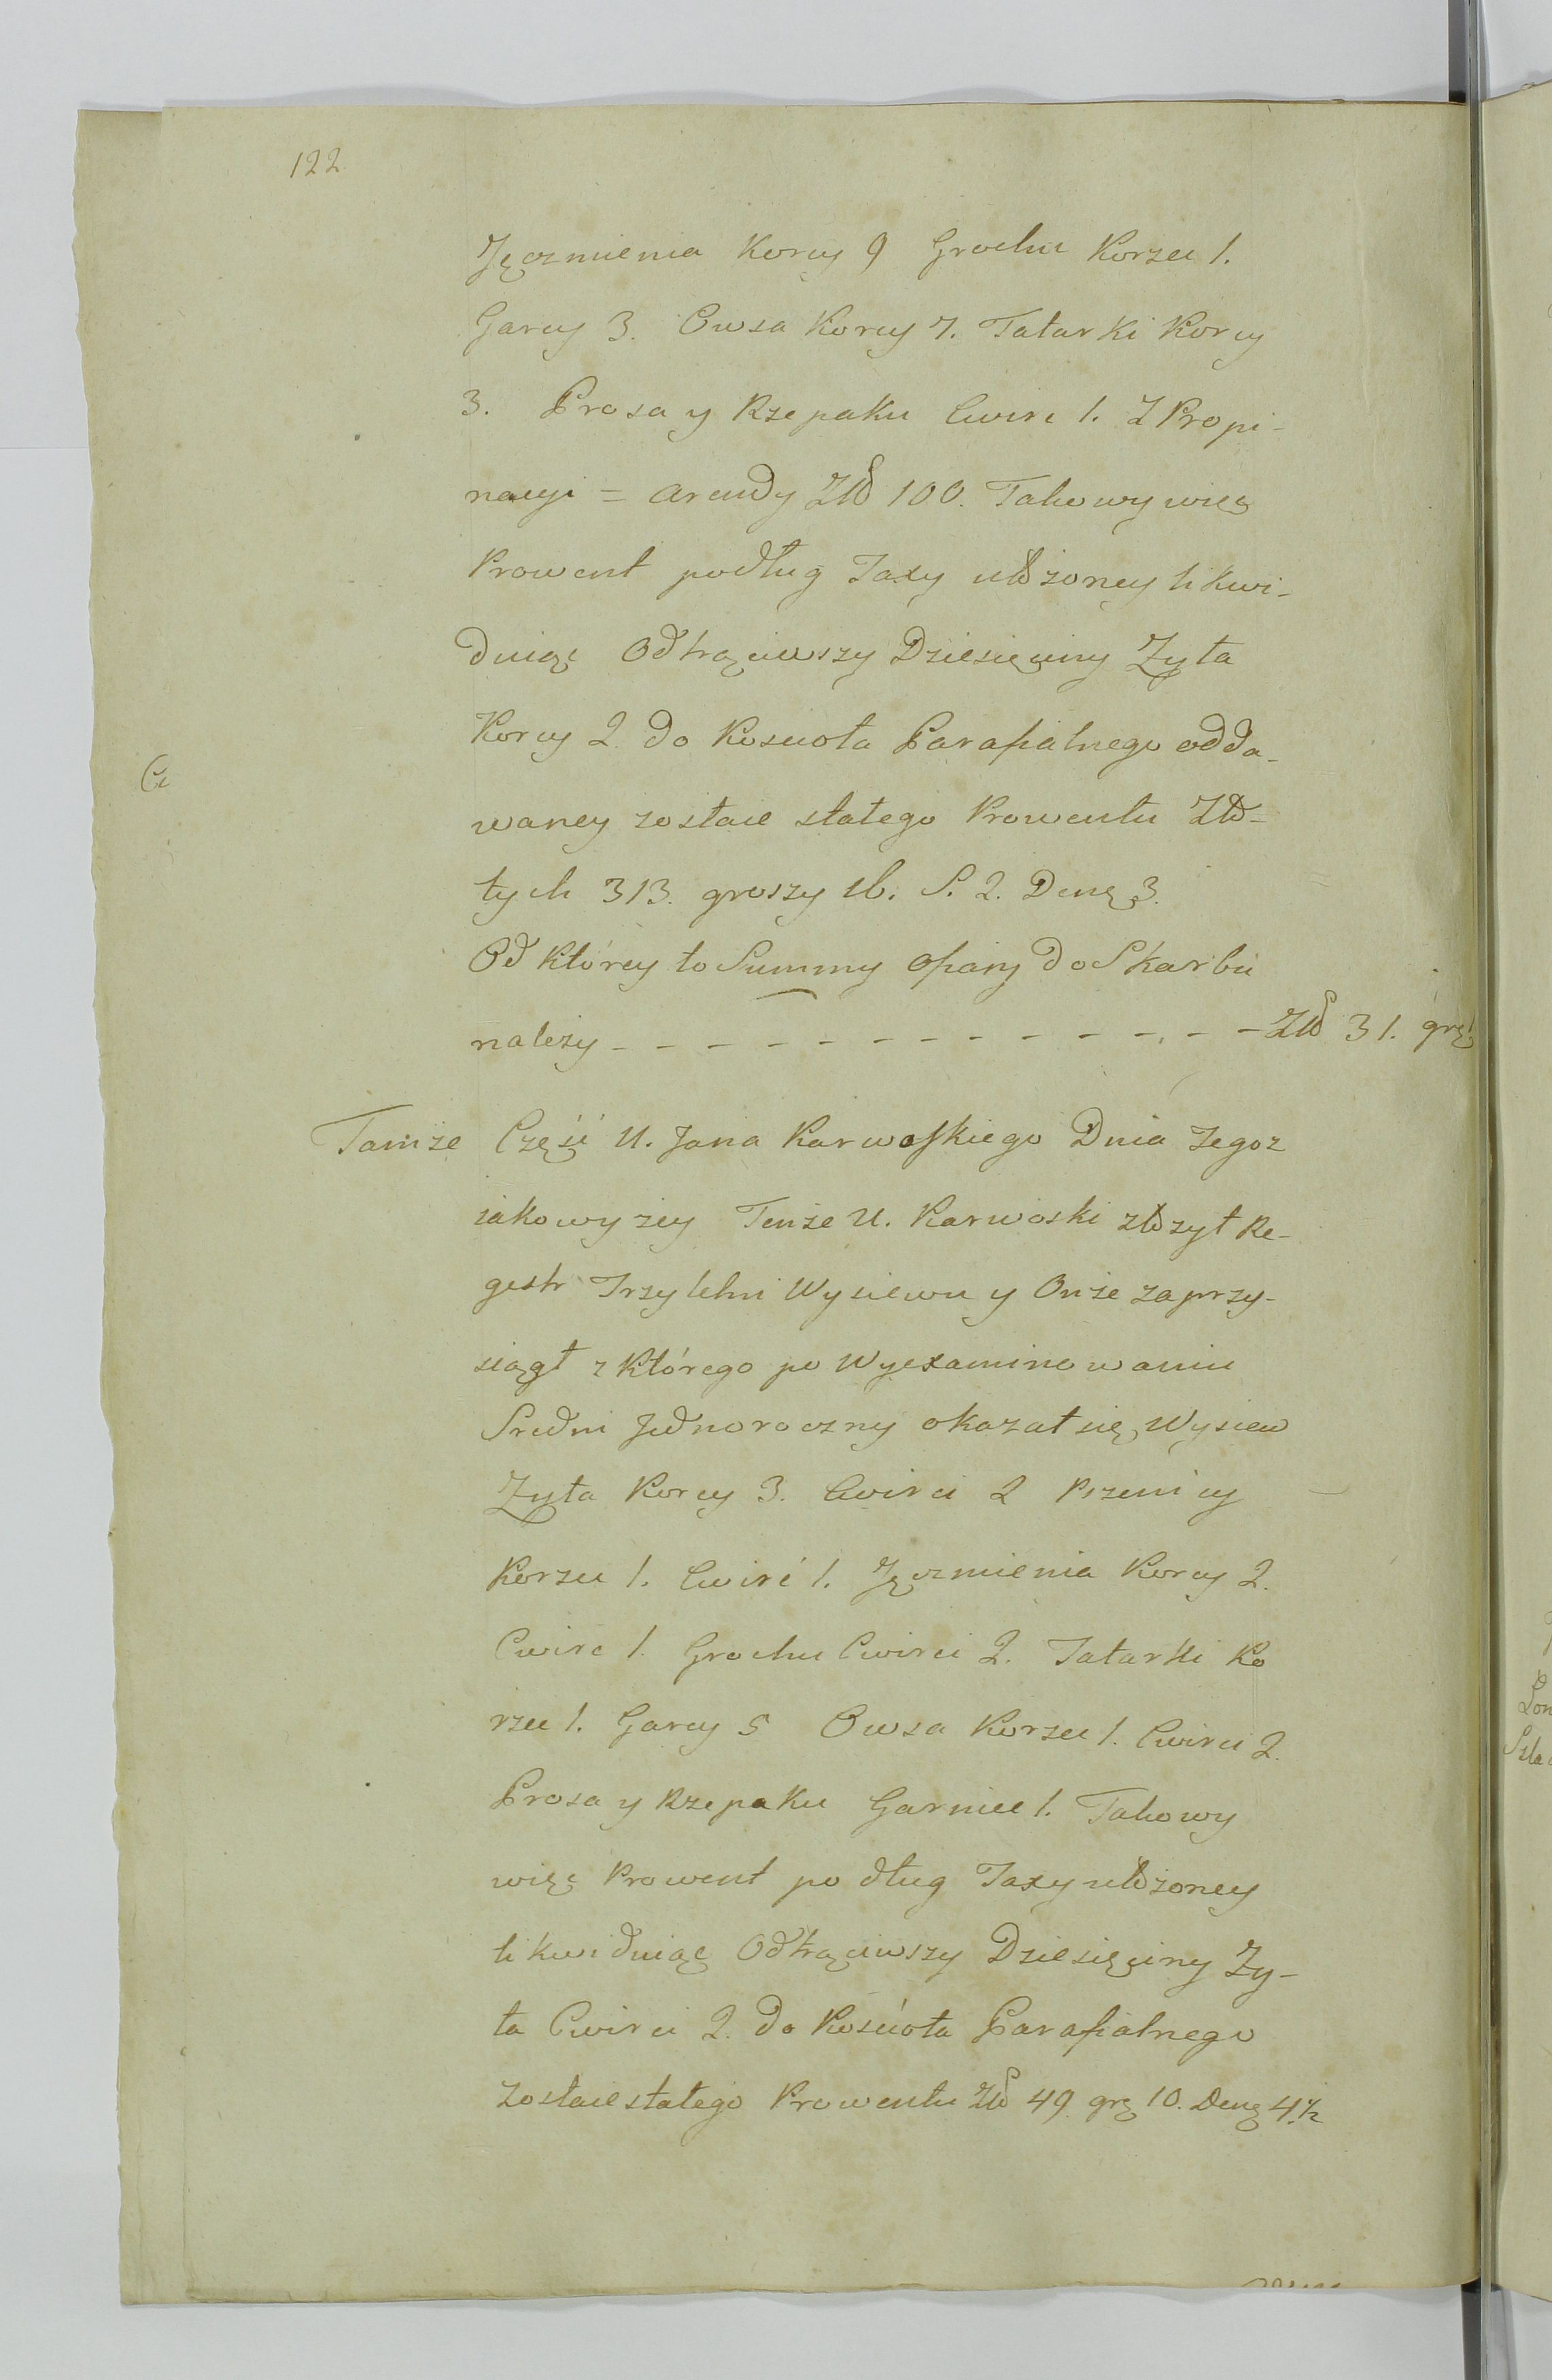 122
Jęczmienia Korcy 9 Grochu Korzec 1.
Garcy 3. Owsa Korcy 7. Tatarki Korcy
3. Prosa y Rzepaku Cwirc 1. Z Propi-
nacyi = Arendy Złł 100. Takowy więc
Prowent podług Taxy ułożoney likwi-
duiąc Odtrąciwszy Dziesięciny Zyta
Korcy 2 do Kościoła Parafialnego odda-
waney zostaie stałego Prowentu Zło-
tych 313. groszy 16. S. 2. Deng 3.
Od którey to Summy ofiary do Skarbu
należy - - - - - - - - - - - - - Złł 31. grę
Tamże Część U. Jana Karwoskiego Dnia tegoz
iakowyżey Tenże U. Karwoski złożył Re-
gestr Trzyletni Wysiewu y Onże zaprzy-
siągł z którego po Wyexaminowaniu
Sredni Jednoroczny okazał się Wysiew
Zyta Korcy 3. Cwirci 2 Pszenicy
Korzec 1. Cwirć 1. Jęczmienia Korcy 2.
Cwirc 1. Grochu Cwirci 2. Tatarki Ko
rzec 1. Garcy 5 Owsa Korzec 1. Cwirci 2.
Prosa y Rzepaku Garniec 1. Takowy
więc Prowent podług Taxy ułożoney
likwiduiąc Odtrąciwszy Dziesięciny Zy-
ta Cwirci 2. do Kościoła Parafialnego
zostaie stałego Prowentu Złł 49 grę 10. Deng 4.½